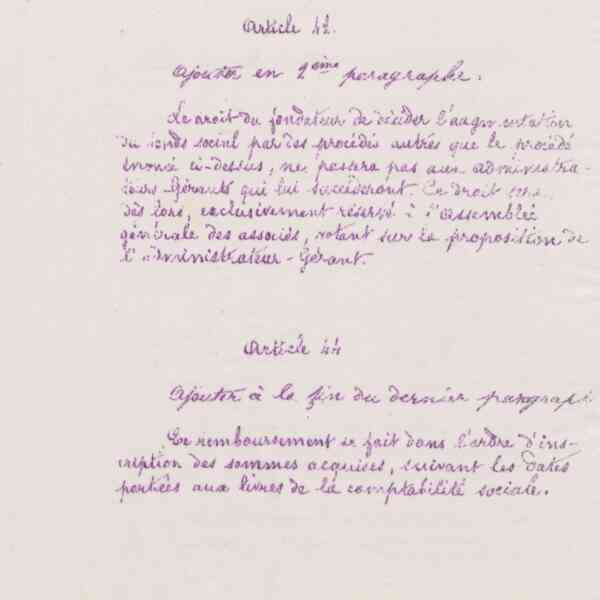 Article 42.
Ajouter en 2ème paragraphe.
Le droit du fondateur de décider l'augmentation
du fonds social par des procédés autres que le procédé
énoncé ci-dessus, ne passera pas aux administra-
teurs-Gérants qui lui succéderont. Ce droit sera
dès lors, exclusivement réservé à l'Assemblée
générale des associés, votant sur la proposition de
l'administrateur-Gérant.
Article 44
Ajouter à la fin du dernier paragraphe
Le remboursement se fait dans l'ordre d'ins-
cription des sommes acquises, suivant les dates
portées aux livres de la comptabilité sociale.